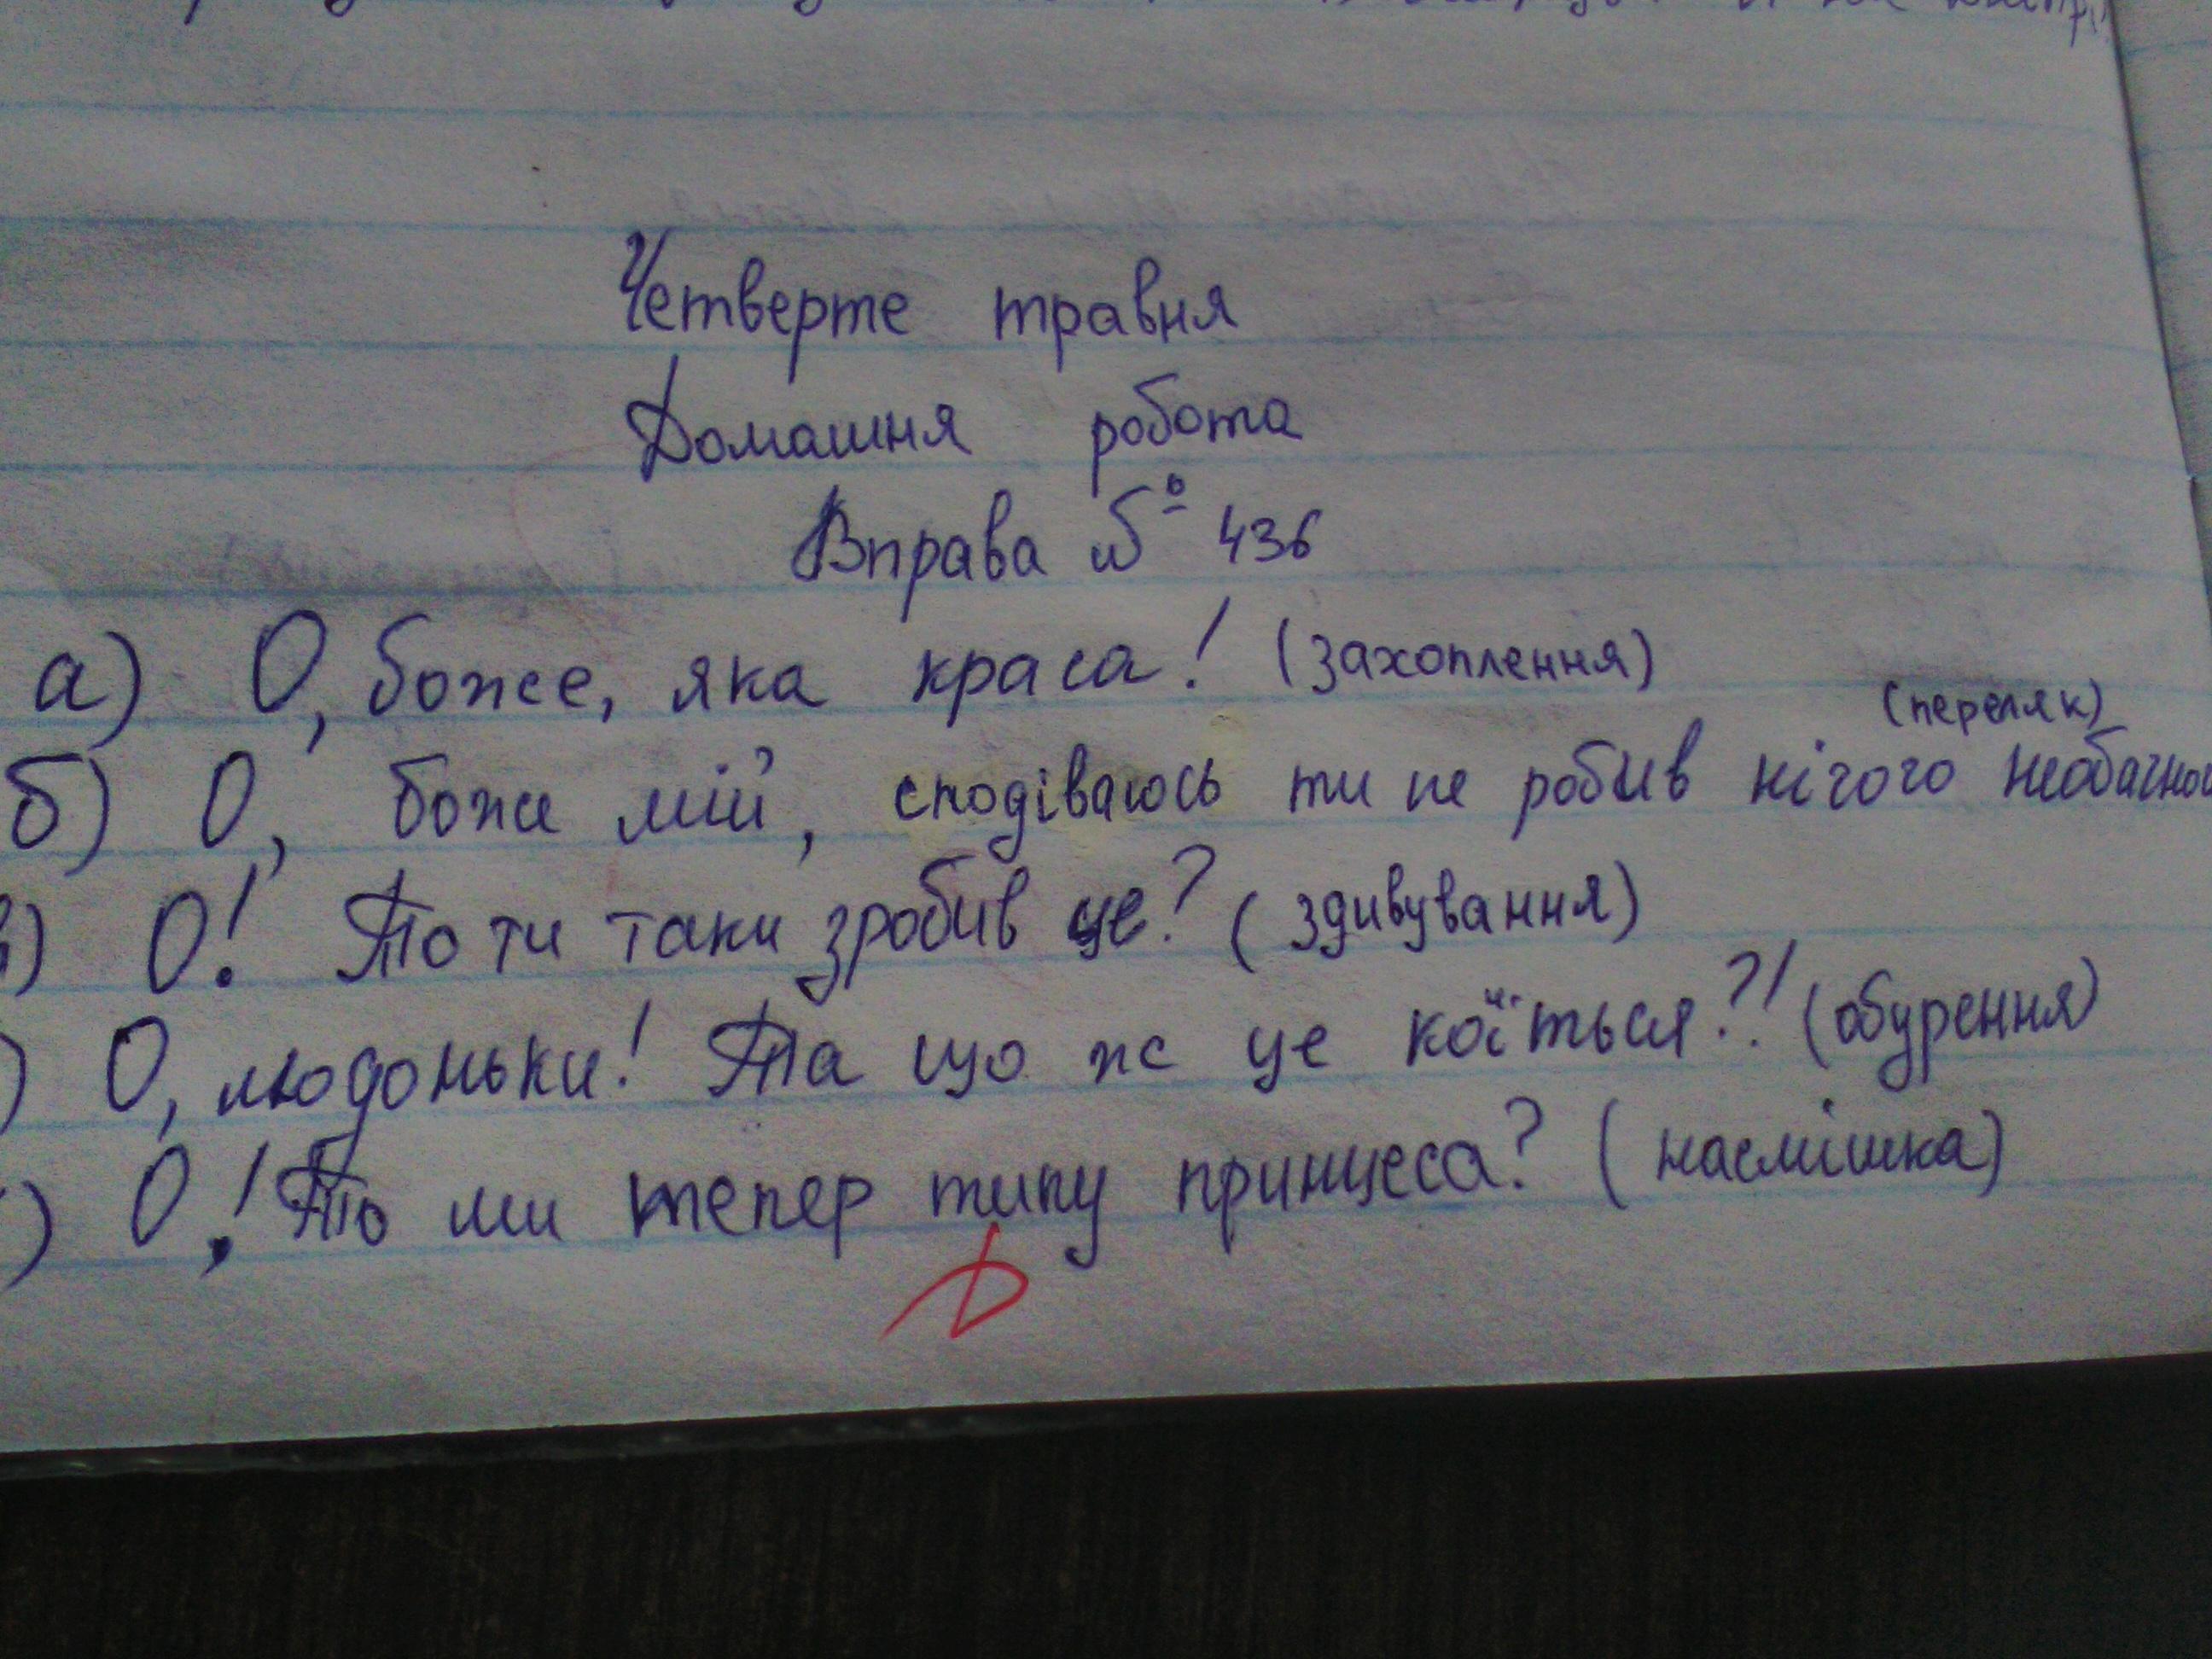 Четверте травня
Домашня робота
Вправа № 436
а) О, боже, яка краса! (захоплення)
(переляк)
б) О, боже мій, сподіваюсь ти не робив нічого
в) О! То ти таки зробив це? (здивування)
) О, людоньки! Та що ж це коїться?! (обурення)
) О! То ми тепер типу принцеса? (насмішка)